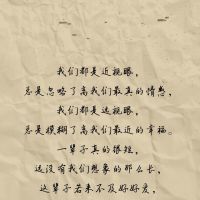 我们都是近视眼，
总是忽略了离我们最真的情感，
我们都是远视眼，
总是模糊了离我们最近的幸福。
一辈子真的很短，
远没有我们想象的那么长，
这辈子若来不及好好爱，